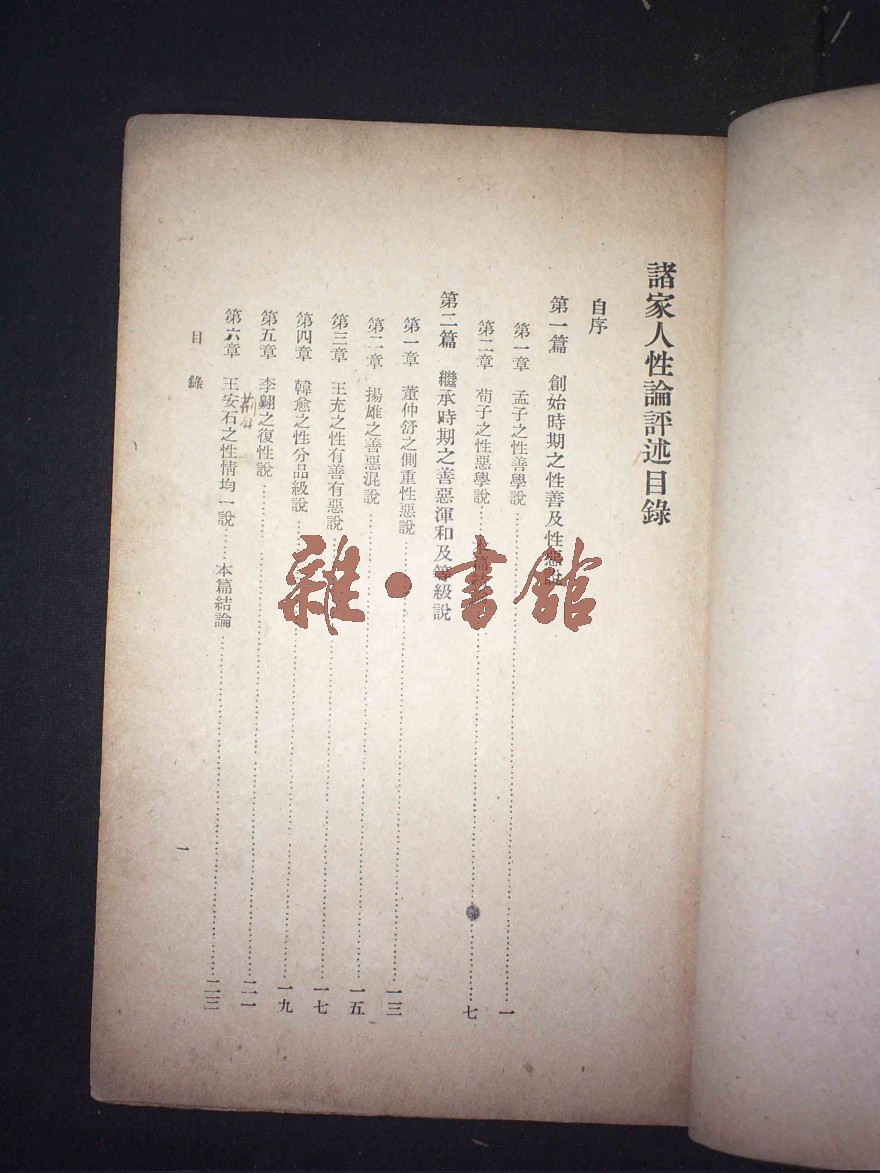 諸家人性論評述目錄
自序
第一篇 創始時期之性善及性惡說
第一章 孟子之性善學說……一
第二章 荀子之性惡學說……七
第二篇 繼承時期之善惡渾和及等級說
第一章 董仲舒之側重性惡說……一三
第二章 揚雄之善惡混說……一五
第三章 王充之性有善有惡說……一七
第四章 韓愈之性分品級說……一九
第五章 李翺之復性說……二一
第六章 王安石之性情均一說……本篇結論……二三
目錄
一
雜·書館